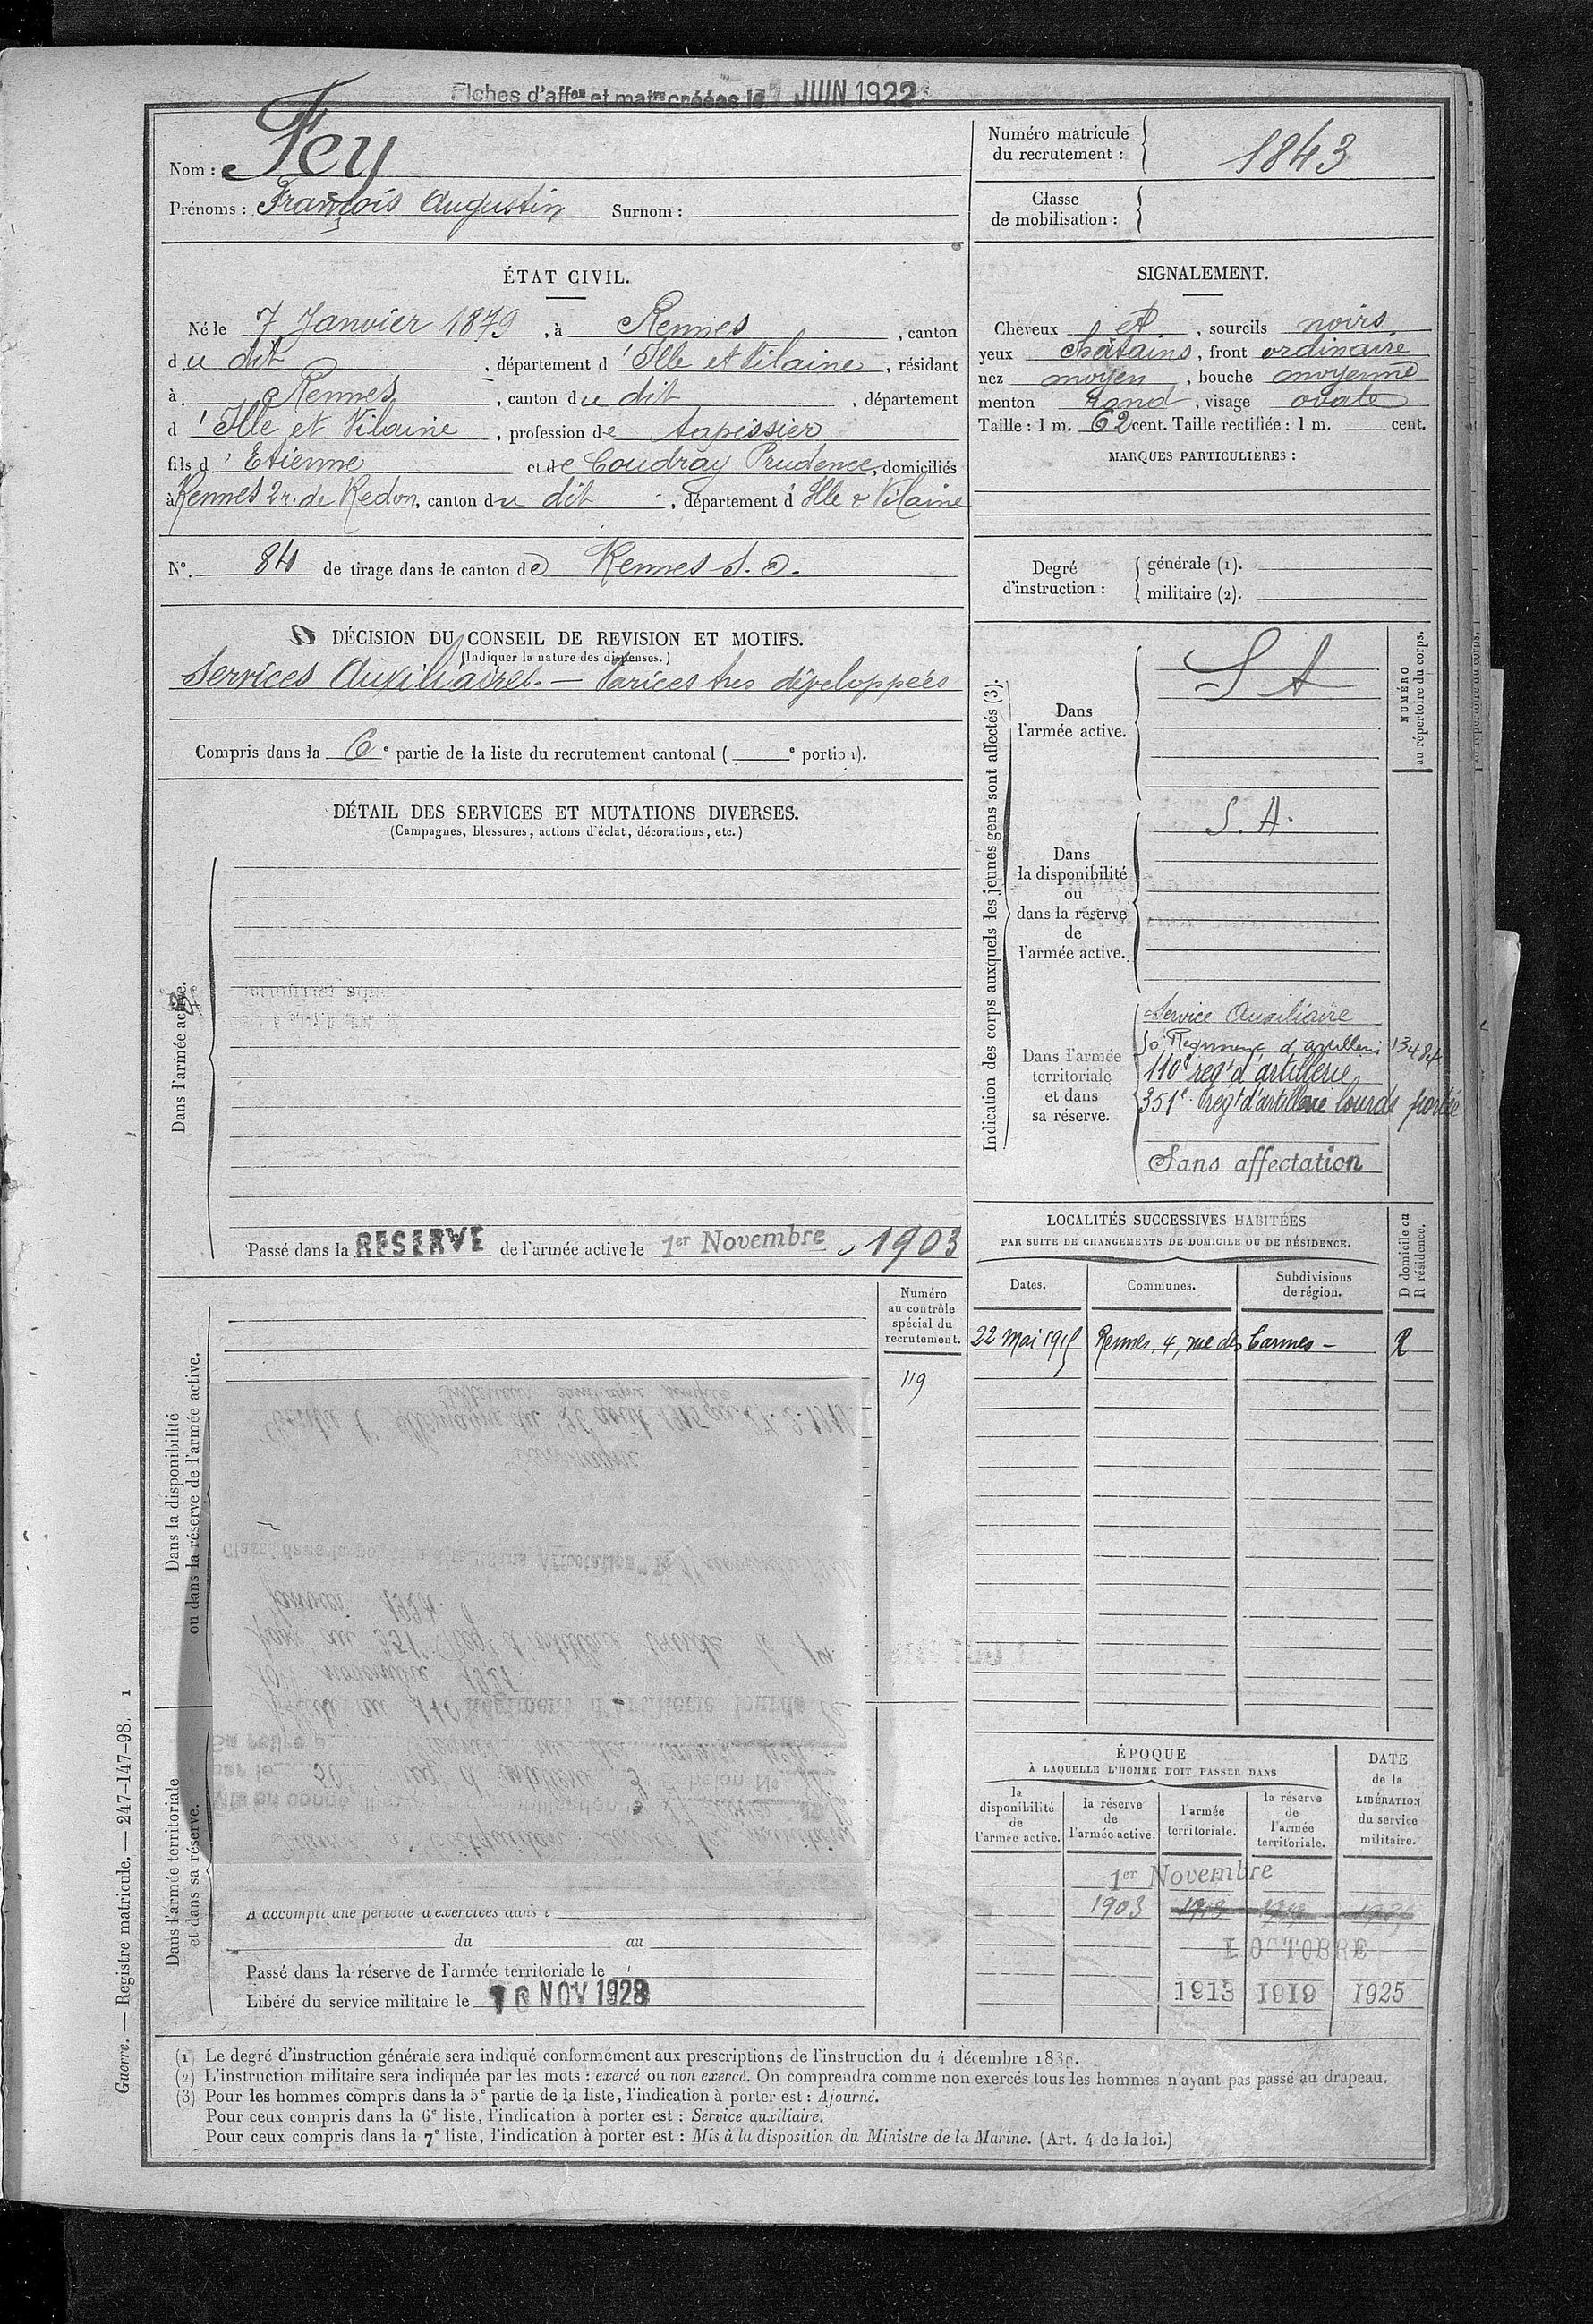 Fiches d'affon et matre créées le 7 JUIN 1922
Nom : Fey
Prénoms : François Augustin Surnom :
Numéro matricule du recrutement : 1843
Classe de mobilisation :
ÉTAT CIVIL.
Né le 7 Janvier 1879, à Rennes, canton
du dit, département d'Ille et Vilaine, résidant
à Rennes, canton du dit, département
d'Ille et Vilaine, profession de tapissier
fils d'Etienne et de Coudray Prudence, domiciliés
à Rennes 2 r. de Redon, canton du dit, département d'Ille & Vilaine
N°. 84 de tirage dans le canton de Rennes S. O.
SIGNALEMENT.
Cheveux et, sourcils noirs
yeux châtains, front ordinaire
nez moyen, bouche moyenne
menton rond, visage ovale
Taille : 1 m. 62 cent. Taille rectifiée : 1 m. cent.
MARQUES PARTICULIÈRES :
Degré d'instruction :
générale (1).
militaire (2).
DÉCISION DU CONSEIL DE REVISION ET MOTIFS.
(Indiquer la nature des dispenses.)
Services Auxiliaires. — Varices très développées
Compris dans la 6e partie de la liste du recrutement cantonal ( e portion).
DÉTAIL DES SERVICES ET MUTATIONS DIVERSES.
(Campagnes, blessures, actions d'éclat, décorations, etc.)
Dans l'armée active.
Passé dans la RESERVE de l'armée active le 1er Novembre 1903
Indication des corps auxquels les jeunes gens sont affectés (3).
NUMÉRO au répertoire du corps.
Dans l'armée active.
S A
Dans la disponibilité ou dans la réserve de l'armée active.
S. A.
Dans l'armée territoriale et dans sa réserve.
Service Auxiliaire
50e Régiment d'artillerie 13484
110e regt d'artillerie
351e regt d'artillerie lourde portée
Sans affectation
LOCALITÉS SUCCESSIVES HABITÉES
PAR SUITE DE CHANGEMENTS DE DOMICILE OU DE RÉSIDENCE.
Dates. Communes. Subdivisions de région. D domicile ou R résidence.
22 Mai 1915 Rennes, 4, rue des Carmes - R
Dans la disponibilité ou dans la réserve de l'armée active.
Numéro au contrôle spécial du recrutement.
119
Dans l'armée territoriale et dans sa réserve.
A accompli une période d'exercices dans l
du au
Passé dans la réserve de l'armée territoriale le
Libéré du service militaire le 10 NOV 1928
ÉPOQUE
À LAQUELLE L'HOMME DOIT PASSER DANS
la disponibilité de l'armée active. la réserve de l'armée active. l'armée territoriale. la réserve de l'armée territoriale. DATE de la LIBÉRATION du service militaire.
1er Novembre
1903
1 OCTOBRE
1913 1919 1925
(1) Le degré d'instruction générale sera indiqué conformément aux prescriptions de l'instruction du 4 décembre 1889.
(2) L'instruction militaire sera indiquée par les mots : exercé ou non exercé. On comprendra comme non exercés tous les hommes n'ayant pas passé au drapeau.
(3) Pour les hommes compris dans la 5e partie de la liste, l'indication à porter est : Ajourné.
Pour ceux compris dans la 6e liste, l'indication à porter est : Service auxiliaire.
Pour ceux compris dans la 7e liste, l'indication à porter est : Mis à la disposition du Ministre de la Marine. (Art. 4 de la loi.)
Guerre. — Registre matricule. — 247-147-98. 1